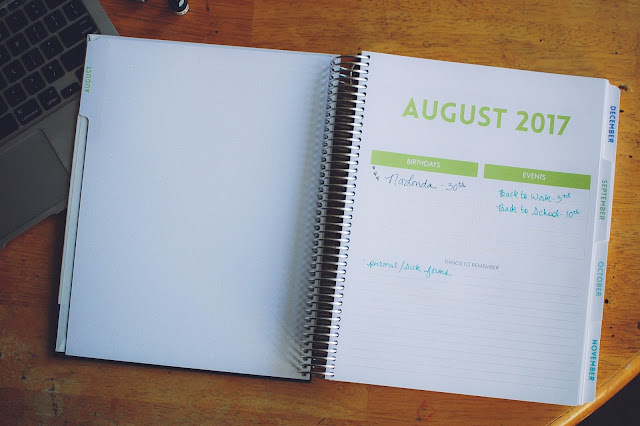 AUGUST
AUGUST 2017
BIRTHDAYS
- 30th
EVENTS
Back to Work - 3rd
Back to School - 10th
THINGS TO REMEMBER
personal/sick forms
DECEMBER
SEPTEMBER
OCTOBER
NOVEMBER